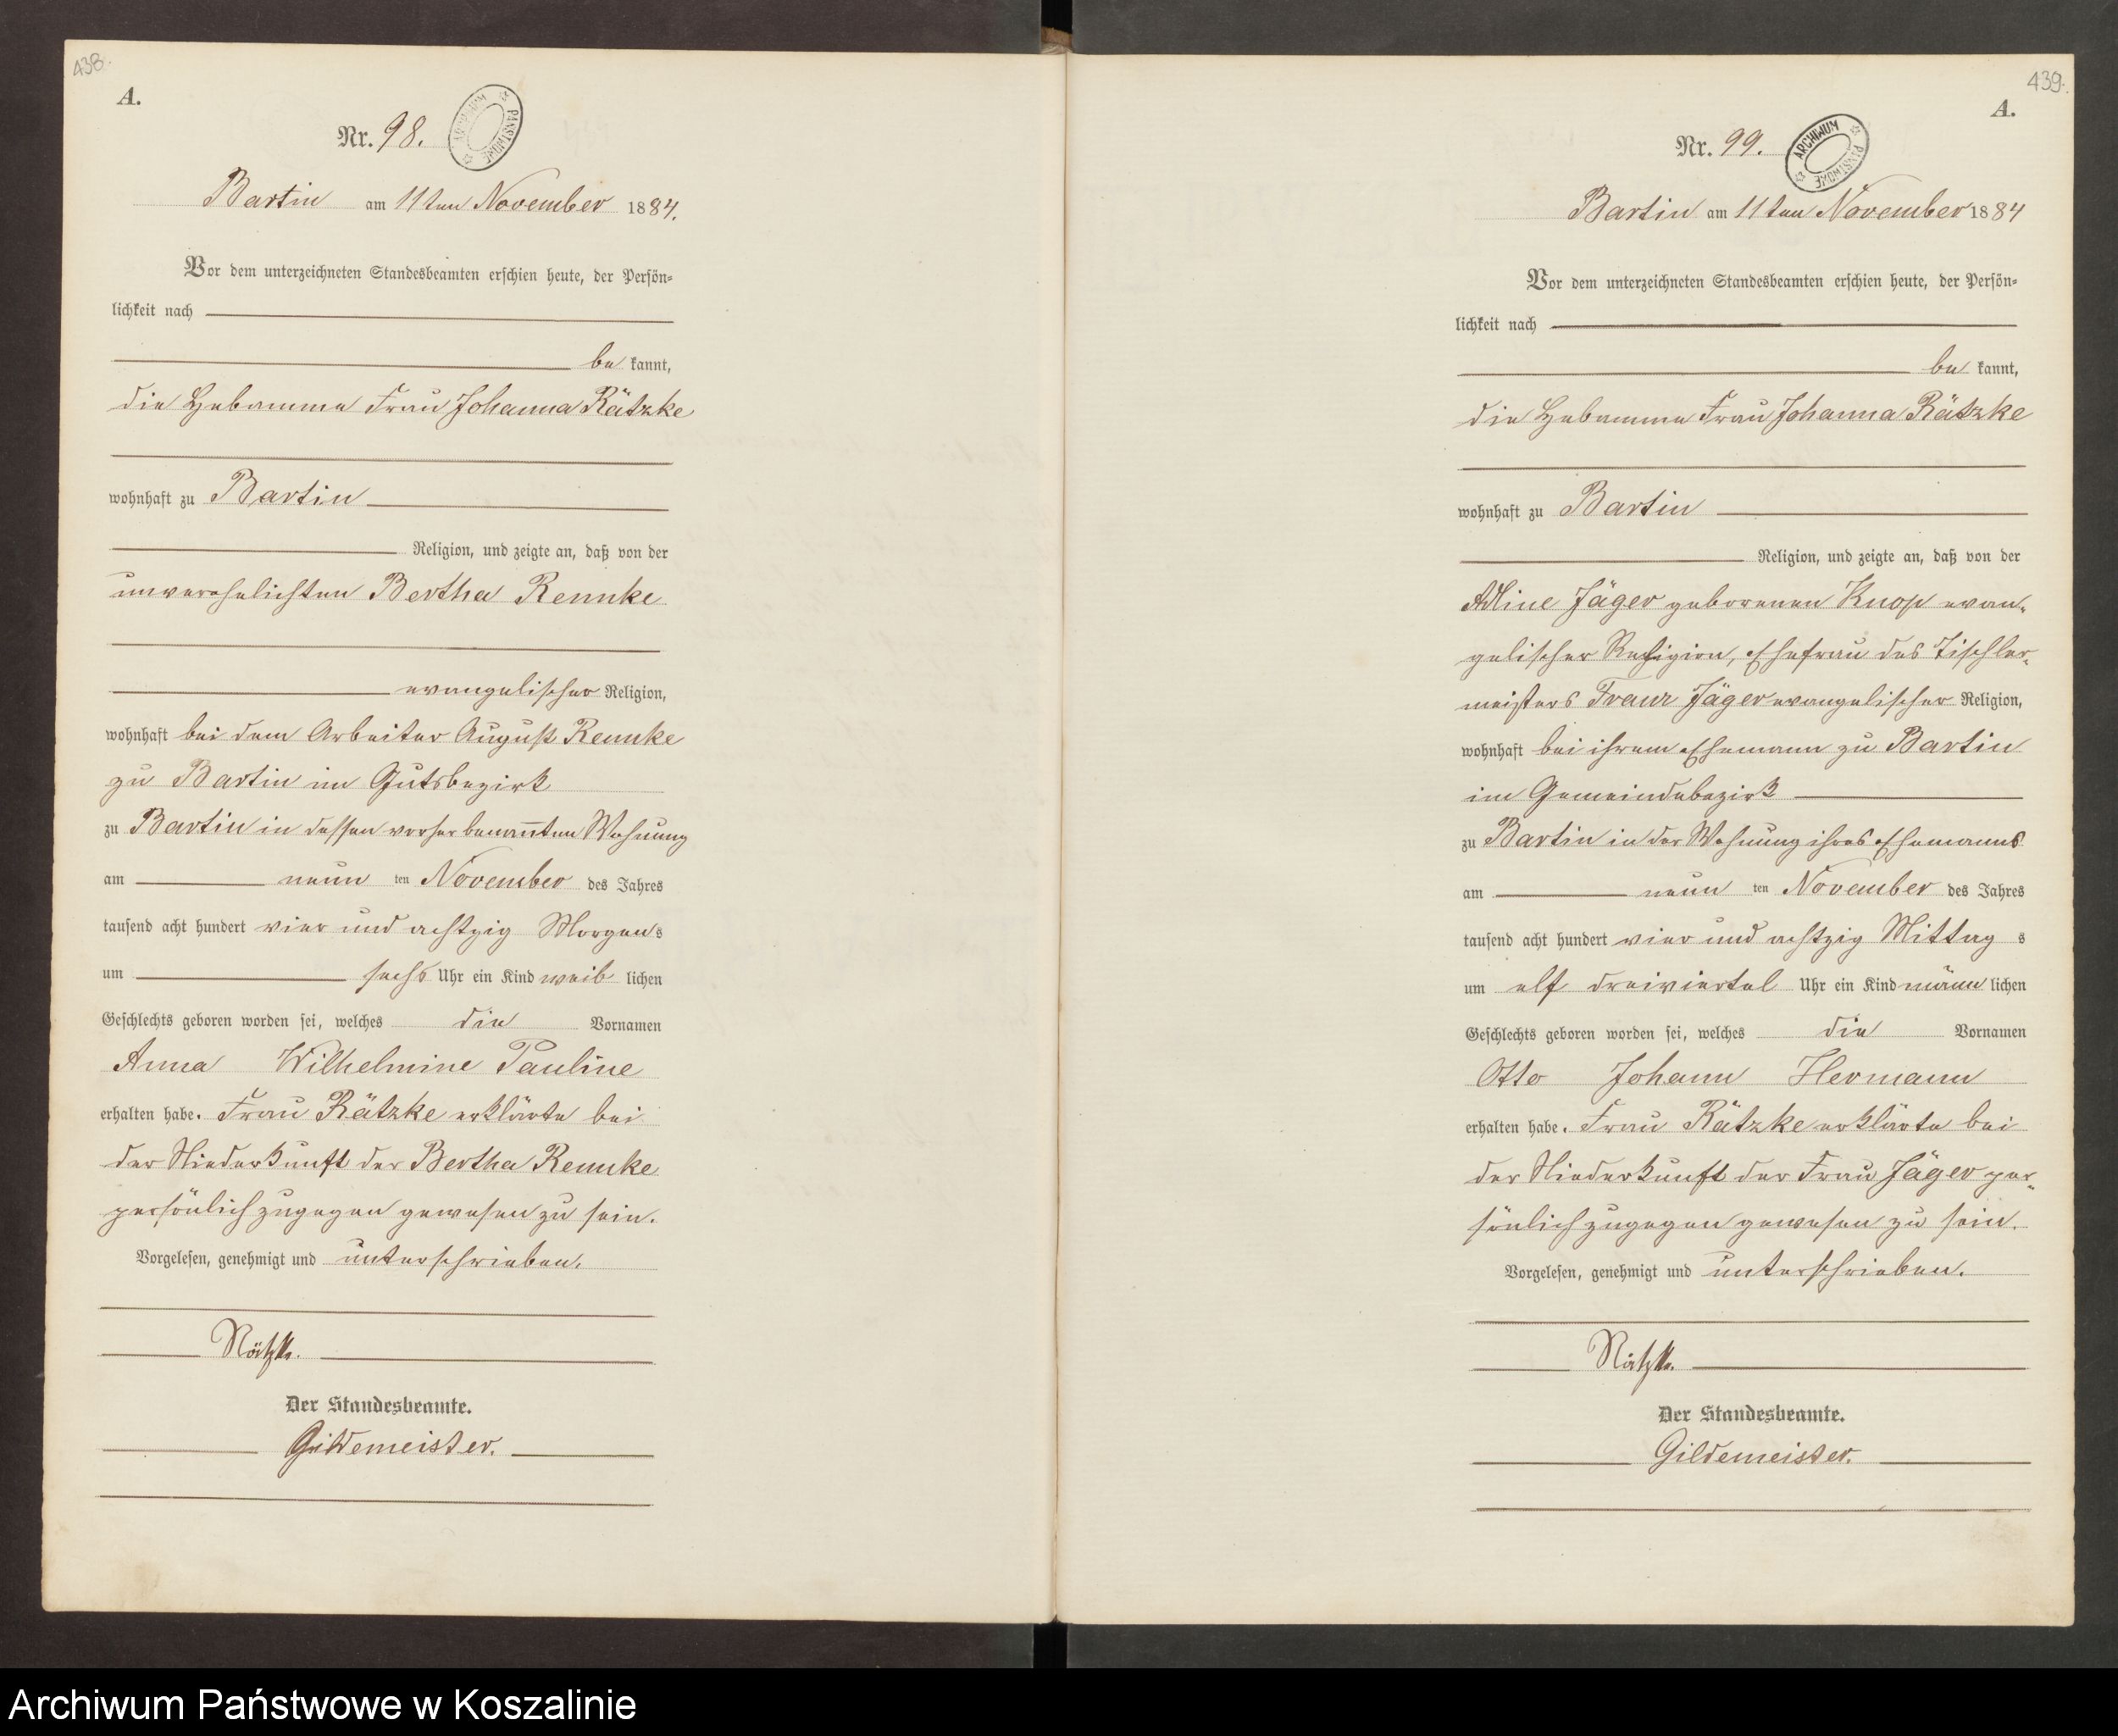 438.
A.
Nr. 98.
ARCHIWUM PAŃSTWOWE
Bartin am 11ten November 1884.
Vor dem unterzeichneten Standesbeamten erschien heute, der Persön-
lichkeit nach
be kannt,
die Hebamme Frau Johanna Rätzke
wohnhaft zu Bartin
Religion, und zeigte an, daß von der
unverehelichten Bertha Rennke
evangelischer Religion,
wohnhaft bei dem Arbeiter August Rennke
zu Bartin im Gutsbezirk
zu Bartin in dessen vorherbenannten Wohnung
am neun ten November des Jahres
tausend acht hundert vier und achtzig Morgens
um sechs Uhr ein Kind weib lichen
Geschlechts geboren worden sei, welches die Vornamen
Anna Wilhelmine Pauline
erhalten habe. Frau Rätzke erklärte bei
der Niederkunft der Bertha Rennke
persönlich zugegen gewesen zu sein.
Vorgelesen, genehmigt und unterschrieben.
Rätzke.
Der Standesbeamte.
Gildemeister.
439.
A.
Nr. 99.
ARCHIWUM PAŃSTWOWE
Bartin am 11ten November 1884
Vor dem unterzeichneten Standesbeamten erschien heute, der Persön-
lichkeit nach
be kannt,
die Hebamme Frau Johanna Rätzke
wohnhaft zu Bartin
Religion, und zeigte an, daß von der
Adline Jäger geborenen Knop evan-
gelischer Religion, Ehefrau des Tischler-
meisters Franz Jäger evangelischer Religion,
wohnhaft bei ihrem Ehemann zu Bartin
im Gemeindebezirk
zu Bartin in der Wohnung ihres Ehemanns
am neun ten November des Jahres
tausend acht hundert vier und achtzig Mittag s
um elf dreiviertel Uhr ein Kind männ lichen
Geschlechts geboren worden sei, welches die Vornamen
Otto Johann Hermann
erhalten habe. Frau Rätzke erklärte bei
der Niederkunft der Frau Jäger per-
sönlich zugegen gewesen zu sein.
Vorgelesen, genehmigt und unterschrieben.
Rätzke.
Der Standesbeamte.
Gildemeister.
Archiwum Państwowe w Koszalinie